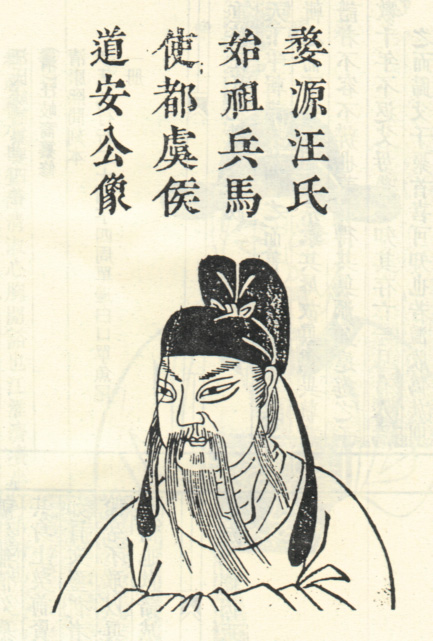 婺源汪氏
始祖兵馬
使都虞侯
道安公像